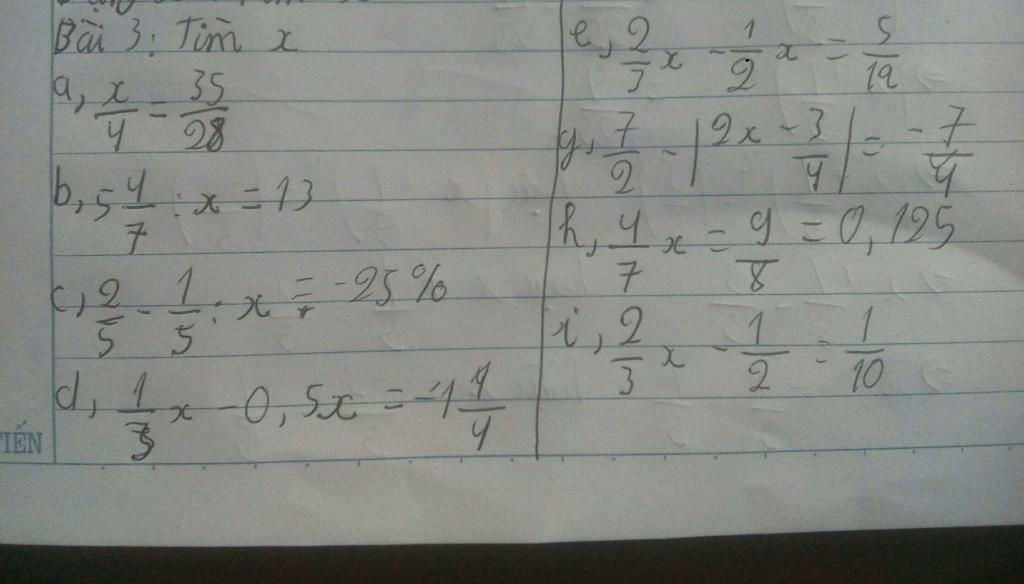 Bài 3: Tìm x
a, x/4 = 35/28
b, 5 4/7 : x = 13
c, 2/5 - 1/5 : x = -25%
d, 1/3 x - 0,5x = -1 1/4
TIẾN
e, 2/3 x - 1/2 x = 5/12
g, 7/2 - |2x - 3/4| = -7/4
h, 4/7 x = 9/8 = 0,125
i, 2/3 x - 1/2 = 1/10